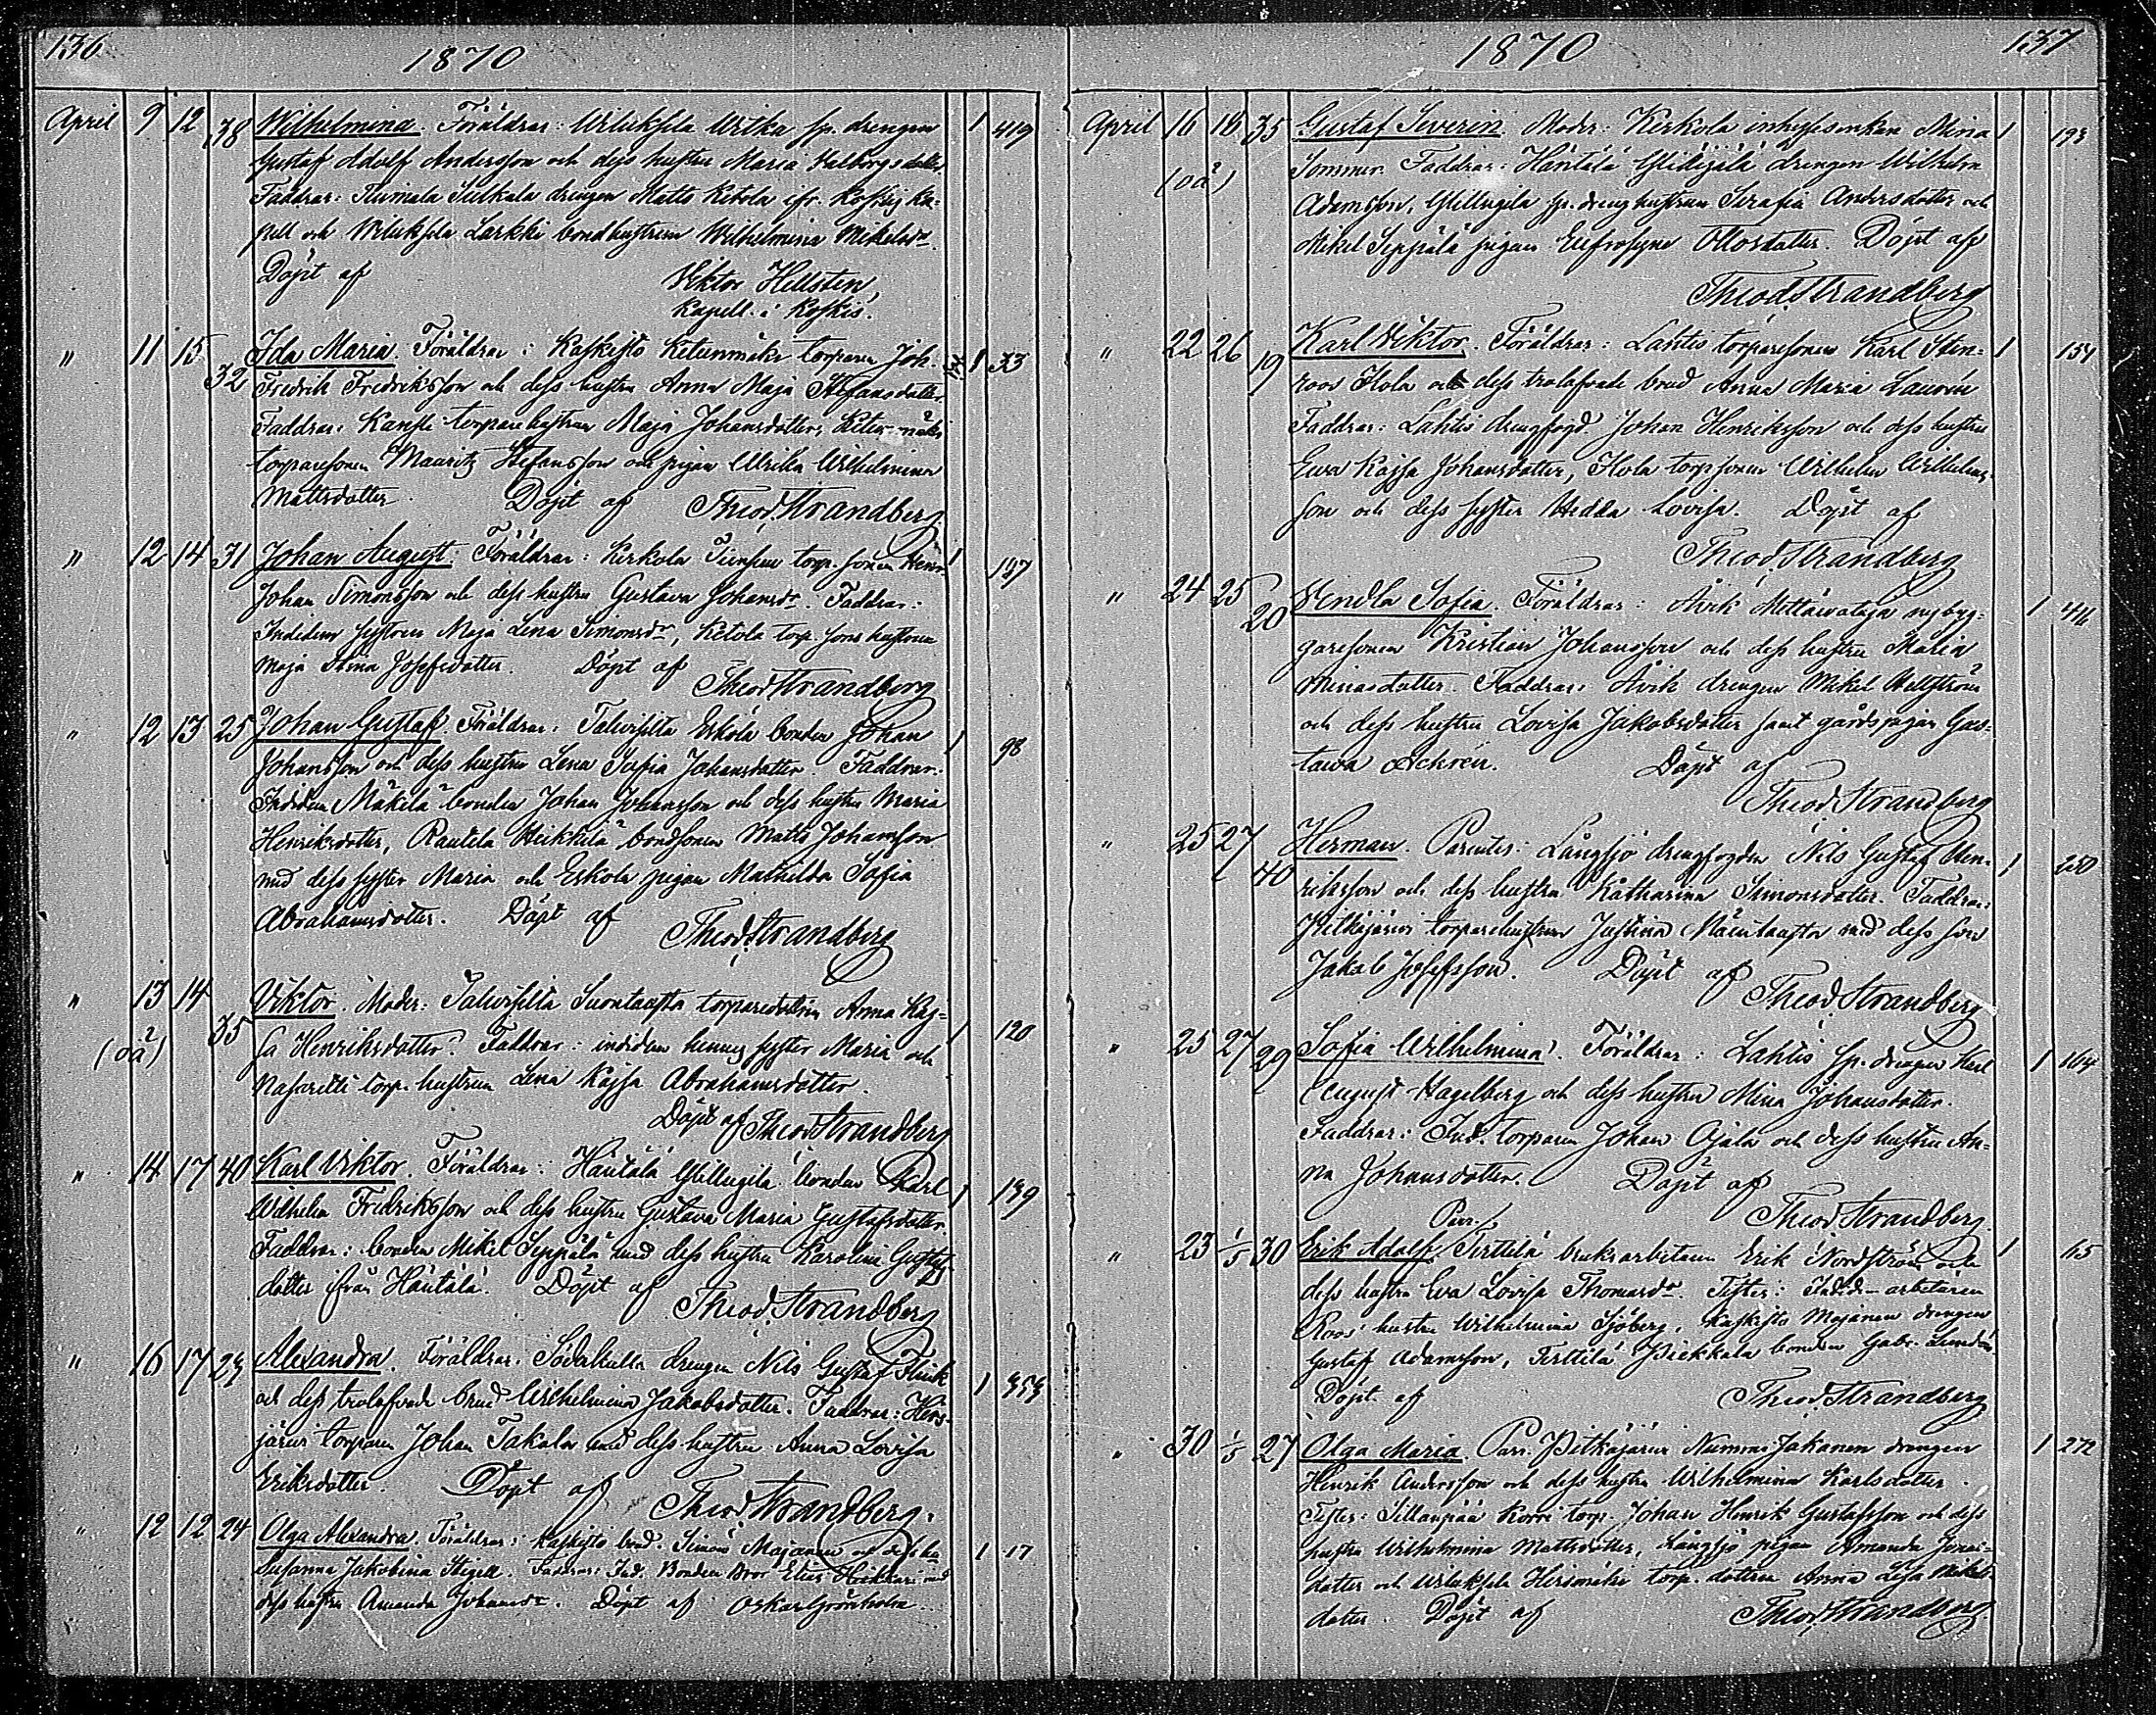 136
1870
April 9 12 38 Wilhelmina. Föräldrar: Wiluksela Uitka sp. drengen 1 419
Gustaf Adolf Andersson och dess hustru Maria Walborgsdotter.
Faddrar: drengen Matts Ketola ifr. Koskis ka-
pell och Wiluksela Larkki bondhustrun Wilhelmina Mikelsdr.
Döpt af Viktor Hellsten,
Kapell. i Koskis.
" 11 15 32 Ida Maria. Föräldrar: Kaskisto Ketunmäki torparen Joh. 1 33
Fredrik Fredriksson och dess hustru Anna Maja Stefansdotter.
Faddrar: torparehustrun Maja Johansdotter, Ketunmäki
torparesonen Mauritz Stefansson och pigan Ulrika Wilhelmina
Mattsdotter. Döpt af Theod. Strandberg
" 12 14 31 Johan August. Föräldrar: Kerkola torp. sonen Henr. 1 197
Johan Simonsson och dess hustru Gustava Johansdr. Faddrar:
Indidem systren Maja Lena Simonsdr, Ketola torp. sons hustrun
Maja Stina Josefsdotter. Döpt af Theod. Strandberg
" 12 13 25 Johan Gustaf. Föräldrar: Talvisilta Eskola bonden Johan 1 98
Johansson och dess hustru Lena Sofia Johansdotter. Faddrar:
Indidem Mäkelä bonden Johan Johansson och dess hustru Maria
Henriksdotter, Rautela Heikkilä bondsonen Matts Johansson
med dess syster Maria och Eskola pigan Mathilda Sofia
Abrahamsdotter. Döpt af Theod. Strandberg
" 13 14 35 Viktor. Moder: Talvisilta Suontausta torparedottren Anna Kaj- 1 120
(oä) sa Henriksdotter. Faddrar: indidem hennes syster Maria och
Nasaretti torp. hustrun Lena Kajsa Abrahamsdotter.
Döpt af Theod. Strandberg
" 14 17 40 Karl Viktor. Föräldrar: Häntälä Yllingilä bonden Karl 1 139
Wilhelm Fredriksson och dess hustru Gustava Maria Gustafsdotter.
Faddrar: bonden Mikel Seppälä med dess hustru Karolina Gustafs-
dotter ifrån Häntälä. Döpt af Theod. Strandberg
" 16 17 23 Alexandra. Föräldrar: Söderkulla drengen Nils Gustaf Flink 1 353
och dess trolofvade brud Wilhelmina Jakobsdotter. Faddrar: Hirs-
järvi torparen Johan Takala med dess hustru Anna Lovisa
Eriksdotter. Döpt af Theod. Strandberg.
" 12 12 24 Olga Alexandra. Föräldrar: Kaskisto bond. Simon Majanen och dess hu 1 17
Susanna Jakobina Stigell. Faddrar: Ind. Bonden Bror Elias Heikkari med
dess hustru Amanda Johansdr. Döpt af Oskar Grönholm.
1870
137
April 16 18 35 Gustaf Severin. Moder: Kerkola inhysesenkan Mina 1 193
(oä) Sommer. Faddrar: Häntälä drengen Wilhelm
Adamsson, Yllingilä sp. dreng hustrun Serafia Andersdotter och
Mikel Seppälä pigan Eufrosyne Ottosdotter. Döpt af
Theod. Strandberg
" 22 26 19 Karl Viktor. Föräldrar: Lahtis torparesonen Karl Sten- 1 154
roos Hola och dess trolofvade brud Anna Maria Laurén
Faddrar: Lahtis drengfogd Johan Henriksson och dess hustru
Ewa Kajsa Johansdotter, Hola torpsonen Wilhelm Wilhelms-
son och dess syster Hedda Lovisa. Döpt af
Theod. Strandberg
" 24 25 20 Vendla Sofia. Föräldrar: Åvik nybyg- 1 416
garesonen Kristian Johansson och dess hustru Maria
dotter. Faddrar: Åvik drengen Mikel Hellström
och dess hustru Lovisa Jakobsdotter samt gårdspigan Gus-
tawa Ackrén. Döpt af
Theod. Strandberg
" 25 27 40 Herman. Parentes: Långsjö drengfogden Nils Gustaf Hen- 1 250
riksson och dess hustru Katharina Simonsdotter. Faddrar:
Pitkäjärvi torparehustrun Justina med dess son
Jakob Josefsson. Döpt af
Theod. Strandberg
" 25 27 29 Sofia Wilhelmina. Föräldrar: Lahtis sp. drengen Karl 1 164
August Hagelberg och dess hustru Mina Johansdotter.
Faddrar: Ind. torparen Johan Ojala och dess hustru An-
na Johansdotter. Döpt af
Theod. Strandberg.
" 23 1/5 30 Erik Adolf. Parr. Terttilä bruksarbetaren Erik Nordström och 1 65
dess hustru Eva Lovisa Thomasdr. Testes: Indid. arbetaren
Roos' hustru Wilhelmina Sjöberg, Kaskisto Majanen drengen
Gustaf Adamsson, Terttilä Piekkala bonden Gabr. Lundén
Döpt af Theod. Strandberg
" 30 1/5 27 Olga Maria. Parr. Pitkäjärvi Nummi Jakanen drengen 1 272
Henrik Andersson och dess hustru Wilhelmina Karlsdotter.
Testes: Sillanpää Korri torp. Johan Henrik Gustafsson och dess
hustru Wilhelmina Mattsdotter, Långsjö pigan Amanda Jonas-
dotter och Wiluksela Hirsimäki torp. dottren Anna Lisa Mikels-
dotter. Döpt af Theod. Strandberg